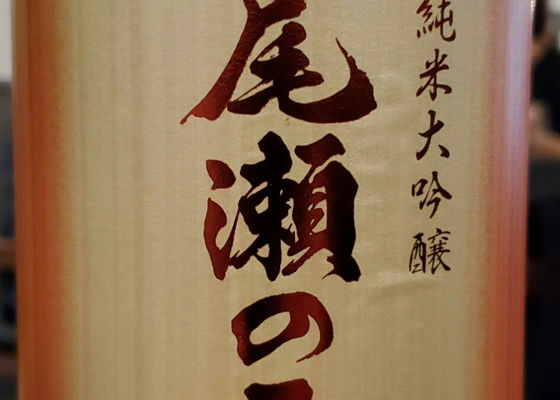 純米大吟醸
尾瀬の